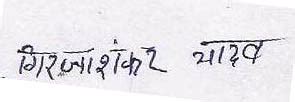 गिरजाशंकर यादव